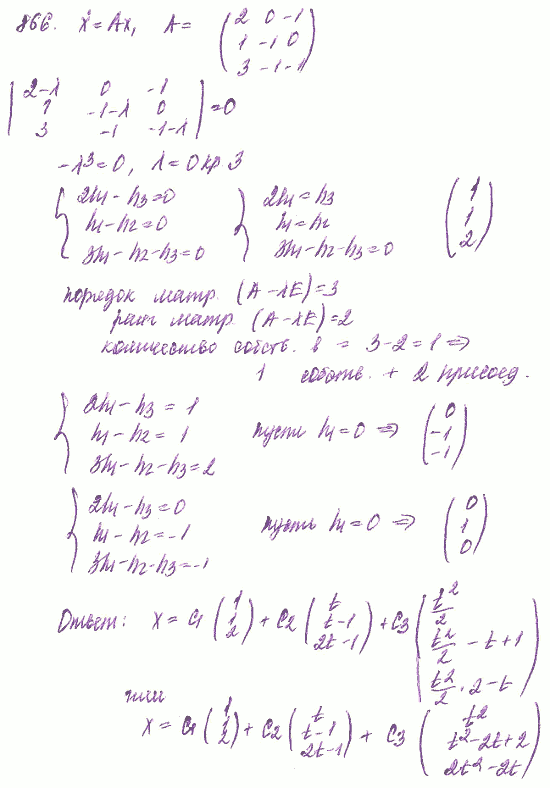 866. ẋ = Ax, A = (2 0 -1
1 -1 0
3 -1 -1)
|2-λ 0 -1
1 -1-λ 0
3 -1 -1-λ| = 0
-λ³ = 0, λ = 0 кр 3
{2h₁ - h₃ = 0 {2h₁ = h₃ (1
h₁ - h₂ = 0 h₁ = h₂ 1
3h₁ - h₂ - h₃ = 0 3h₁ - h₂ - h₃ = 0 2)
порядок матр. (A - λE) = 3
ранг матр. (A - λE) = 2
количество собств. в = 3 - 2 = 1 ⇒
1 собств. + 2 присоед.
{2h₁ - h₃ = 1 (0
h₁ - h₂ = 1 пусть h₁ = 0 ⇒ -1
3h₁ - h₂ - h₃ = 2 -1)
{2h₁ - h₃ = 0 (0
h₁ - h₂ = -1 пусть h₁ = 0 ⇒ 1
3h₁ - h₂ - h₃ = -1 0)
Ответ: x = c₁ (1 1 2) + c₂ (t t-1 2t-1) + c₃ (t²/2
t²/2 - t + 1
t²/2 · 2 - t)
или
x = c₁ (1 1 2) + c₂ (t t-1 2t-1) + c₃ (t²
t² - 2t + 2
2t² - 2t)